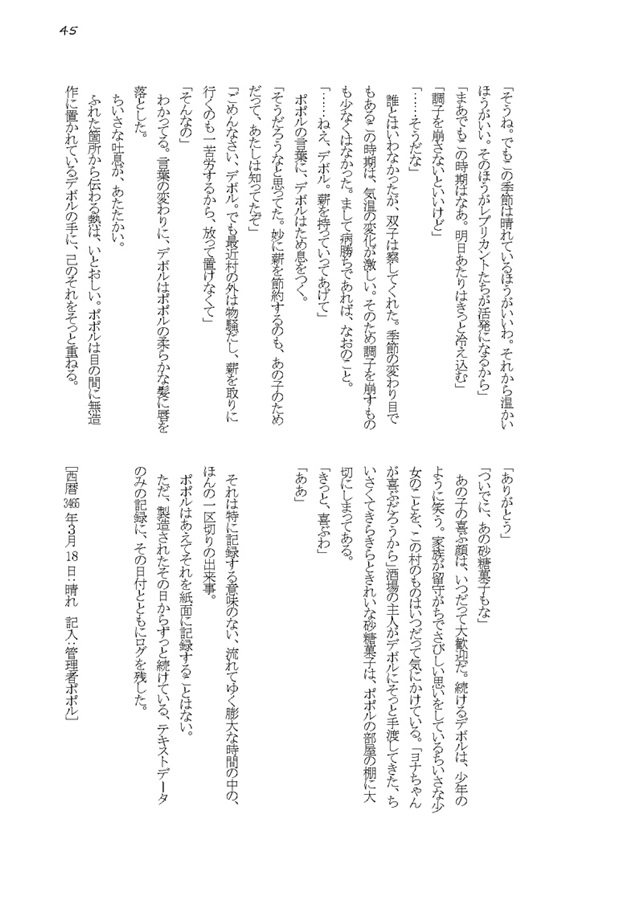 45
「そうね。でもこの季節は晴れているほうがいいわ。それから温かい
ほうがいい。そのほうがレプリカントたちが活発になるから」
「まあでもこの時期はなあ。明日あたりはきっと冷え込む」
「調子を崩さないといいけど」
「……そうだな」
誰とはいわなかったが、双子は察してくれた。季節の変わり目で
もあるこの時期は、気温の変化が激しい。そのため調子を崩すもの
も少なくはなかった。まして病勝ちであれば、なおのこと。
「……ねえ、デボル。薪を持っていってあげて」
ポポルの言葉に、デボルはため息をつく。
「そうだろうなと思ってた。妙に薪を節約するのも、あの子のため
だって、あたしは知ってたぞ」
「ごめんなさい、デボル。でも最近村の外は物騒だし、薪を取りに
行くのも一苦労するから、放って置けなくて」
「そんなの」
わかってる。言葉の変わりに、デボルはポポルの柔らかな髪に唇を
落とした。
ちいさな吐息が、あたたかい。
ふれた箇所から伝わる熱は、いとおしい。ポポルは目の間に無造
作に置かれているデボルの手に、己のそれをそっと重ねる。
「ありがとう」
「ついでに、あの砂糖菓子もな」
あの子の喜ぶ顔は、いつだって大歓迎だ。続けるデボルは、少年の
ように笑う。家族が留守がちでさびしい思いをしているちいさな少
女のことを、この村のものはいつだって気にかけている。「ヨナちゃん
が喜ぶだろうから」酒場の主人がデボルにそっと手渡してきた、ち
いさくてきらきらときれいな砂糖菓子は、ポポルの部屋の棚に大
切にしまってある。
「きっと、喜ぶわ」
「ああ」
それは特に記録する意味のない、流れてゆく膨大な時間の中の、
ほんの一区切りの出来事。
ポポルはあえてそれを紙面に記録することはない。
ただ、製造されたその日からずっと続けている、テキストデータ
のみの記録に、その日付とともにログを残した。
[西暦3465年3月18日:晴れ 記入:管理者ポポル]